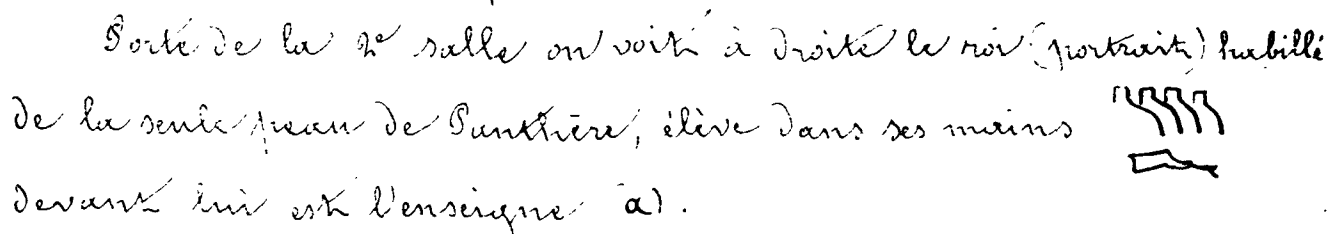 Porte de la 2e salle on voit à droite le roi (portrait) habillé
de la seule peau de Panthère, élève dans ses mains
devant lui est l'enseigne a).